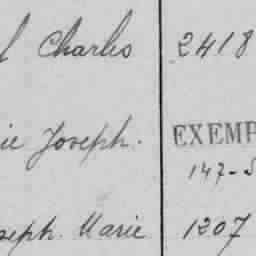 Charles 2418
ie Joseph. EXEMP
147-5
seph. Marie 1207